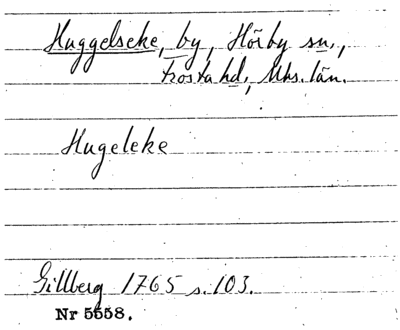 Huggelseke, by, Hörby sn.,
Frosta hd., Mhs. län.
Hugeleke
Gillberg 1765 s. 103.
Nr 5558.